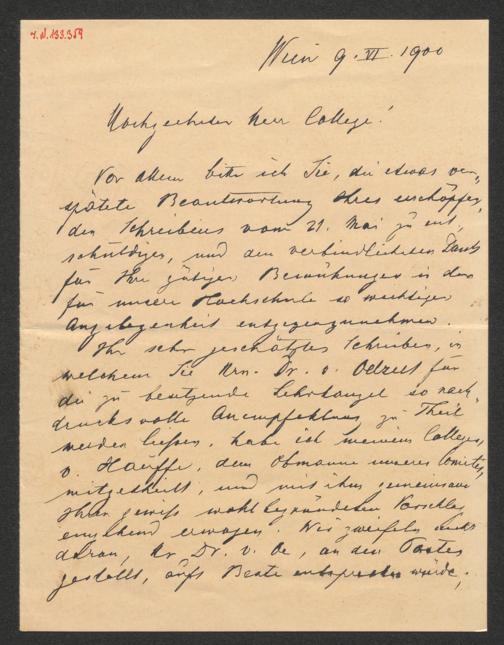 I.N. 133.359
Wien 9. VI. 1900
Hochgeehrter Herr College!
Vor Allem bitte ich Sie, die etwas ver-
spätete Beantwortung Ihres erschöpfen-
den Schreibens vom 21. Mai zu ent-
schuldigen, und den verbindlichsten Dank
für Ihre gütigen Bemühungen in der
für unsere Hochschule so wichtigen
Angelegenheit entgegenzunehmen.
Ihr sehr geschätztes Schreiben, in
welchem Sie Hrn. Dr. v. für
die zu besetzende Lehrkanzel so nach-
drucksvolle Anempfehlung zu Theil
werden ließen, habe ich meinem Collegen
v. Hauffe, dem Obmanne unseres Comités,
mitgetheilt, und mit ihm gemeinsam
Ihren gewiss wohlbegründeten Vorschlag
erwogen. Wir zweifeln nicht
daran, Dr. v. Oe, an den Posten
gestellt, aufs Beste entsprechen würde,